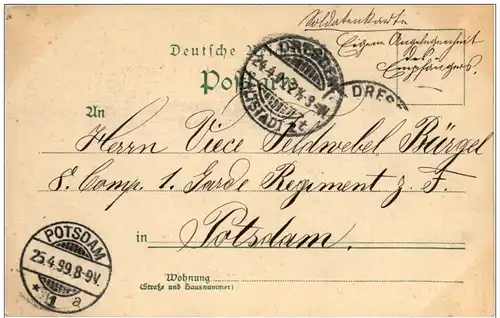 Soldatenkarte
Eigene Angelegenheit
des
Empfängers.
Deutsche
DRESDEN
24.4.99.
ALTSTADT
DRESD
An
Herrn Vice Feldwebel Bürgel
8. Comp. 1. Garde Regiment z. F.
in Potsdam.
POTSDAM
25.4.99.8-9V.
* 1 a
Wohnung
(Straße und Hausnummer)